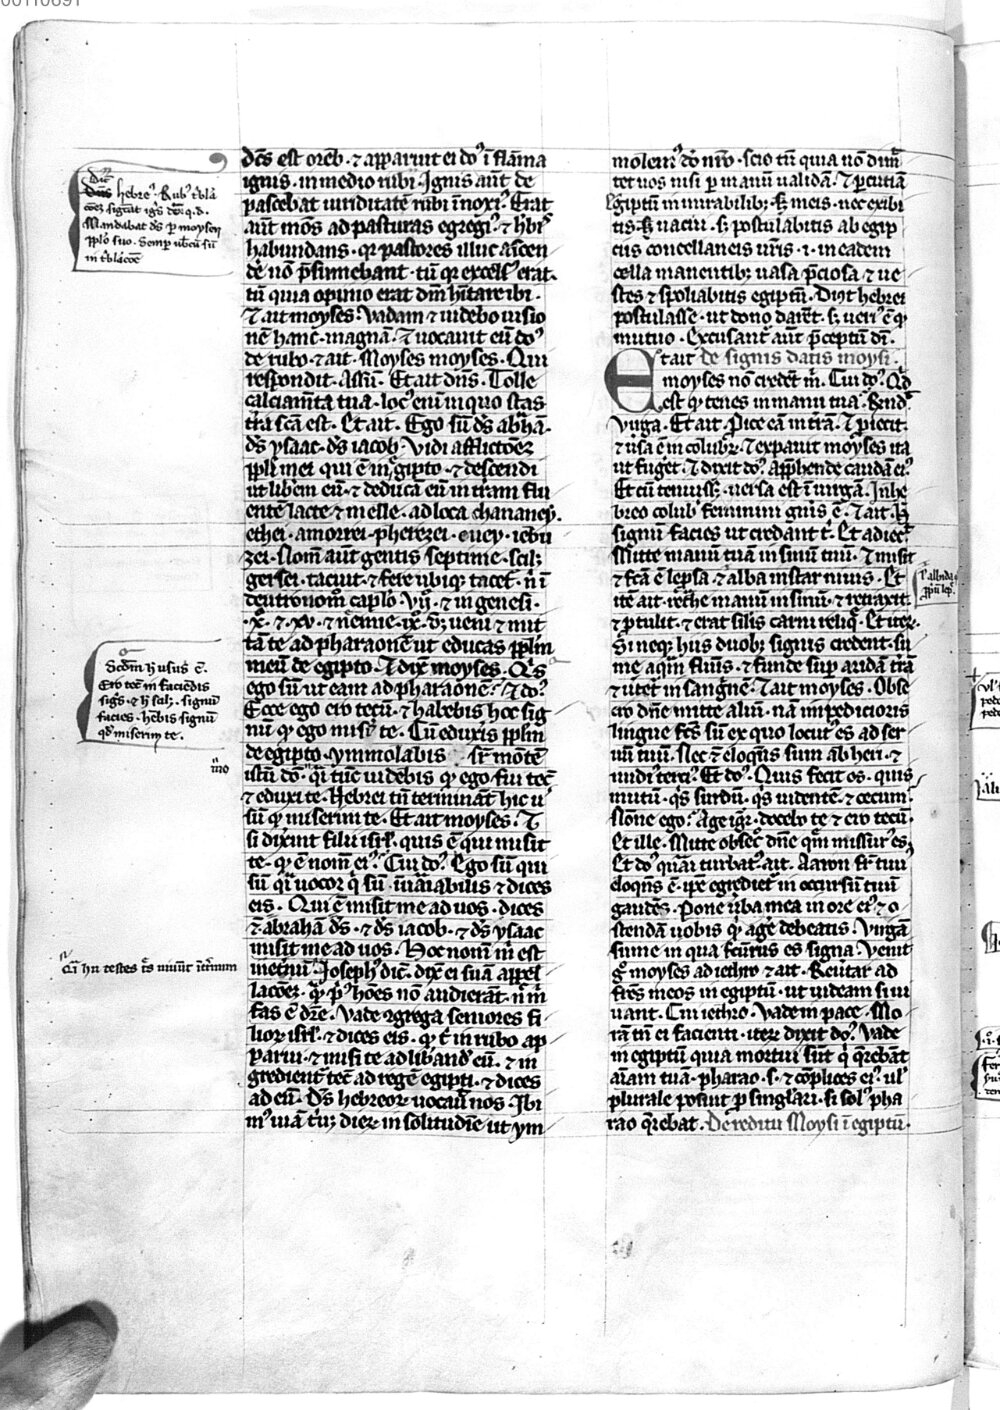 00110691
dc̄s est oreb · ⁊ apparuit ei do⁹ ī flāma
ignis · in medio rubi · Ignis aūt de
pascebat uiriditatē rubi īnoxi⁹ · Erat
aūt mōs ad pasturas egregi⁹ · ⁊ hbīs
habundans · qr pastores illuc ascen
de nō p̄sumebant · tū qr excels⁹ erat ·
tū quia opinio erat dm̄ hītare ibi ·
⁊ ait moyses · uadam ⁊ uidebo uisio
nē hanc · magnā · ⁊ uocauit eū do⁹
de rubo · ⁊ ait · Moyses moyses · Qui
respondit · Assū · Et ait dn̄s · Tolle
calciam̄ta tua · loc⁹ eni in quo stas
t̄ra sc̄a est · Et ait · Ego sū ds̄ abhā ·
ds̄ ysaac · ds̄ iacob · uidi afflictōez
ppl̄i mei qui ē in egipto · ⁊ descendi
ut lib̄em eū · ⁊ deducā eū in t̄ram flu
ente lacte ⁊ melle · ad loca chananey ·
ethei · amorrei · pherezei · euey · iebu
zei · Nom̄ aūt gentis septime · scil⁊
gersei · tacuit · ⁊ fere ubiq⁊ tacet · n̄ ī
deutronom̄ caplo · vij · ⁊ in genesi ·
x · ⁊ xv · ⁊ neemie · ix · d⁊ · ueni ⁊ mit
tā te ad pharaonē ut educas ppl̄m
meū de egipto · ⁊ dix̄ moyses · Qs̄
ego sū ut eam ad pharaonē · ⁊ do⁹
Ecce ego ero tecū · ⁊ habebis hoc sig
nū q̄ ego misi te · Cū eduxis ppl̄m
de egipto · ymmolabis sr̄ montē
istū dō · q̄ tūc uidebis q̄ ego fui tec̄
⁊ eduxi te · Hebrei tn̄ termināt hic u⁹
sū q̄ miserim te · Et ait moyses · ⁊
si dixint filii isrl̄ · quis ē qui misit
te · q̄ ē nom̄ ei⁹ · Cui do⁹ · Ego sū qui
sū · uocor q̄ sū · īuariabilis ⁊ dices
eis · Qui ē misit me ad uos · dices
⁊ abrahā ds̄ · ⁊ ds̄ iacob · ⁊ ds̄ ysaac
misit me ad uos · Hoc nom̄ m̄ est
inetnū · Joseph⁹ dic̄ · dix̄ ei suā appel
lacōez · q̄ p⁹ hōes nō audierāt · n̄ m̄
fas ē dr̄e · Vade ⁊ grega seniores fi
lior isrl̄ · ⁊ dices eis · q̄ t̄ in rubo ap
parui · ⁊ misi te ad liband̄ eū · ⁊ in
gredient̄ tec̄ ad regē egipti · ⁊ dices
ad eū · Ds̄ hebreor uocauit nos · Ibi
m⁹ uiā triū dier in solitudīe ut ym
molem⁹ dō nr̄o · scio tn̄ quia nō dimi
tet uos nisi p manū ualidā · ⁊ p̄cutiā
Egiptū in mirabilib⁊ meis · nec exibi
tis uacui · s⁊ postulabitis ab egip
ciis concellaneis ur̄is · i · in eadem
cella manentib⁊ uasa p̄ciosa ⁊ ue
stes ⁊ spoliabitis egiptū · Dn̄t hebrei
postulasse · ut dono darēt · s⁊ ueri⁹ ē q̄
mutuo · Excusant̄ aūt p̄ceptū di ·
Et ait De signis datis moysi ·
moyses nō credēt m̄ · Cui do⁹ · Qd̄
est q̄ tenes in manu tua · Rnd⁹
Virga · Et ait · Pice eā in t̄rā · ⁊ piecit ·
⁊ uersa ē in colubr̄ · ⁊ expauit moyses ita
ut fuget · ⁊ dixit do⁹ · App̄hende caudā ei⁹
Et cū tenuiss⁊ · uersa est ī uirgā · In he
breo colub⁹ feminini gn̄is ē · ⁊ ait · h̄
signū facies ut credant t̄ · Et adiec̄
Mitte manū tuā in sinū tuū · ⁊ misit
⁊ fc̄a ē lep̄sa ⁊ alba instar niuis · Et
itē ait · reth̄e manū in sinū · ⁊ retraxit ·
⁊ p̄tulit · ⁊ erat silis carni reliq̄ · Et iter̄
Si neq⁊ hiis duob⁊ signis credent · su
me aqm̄ fluīs · ⁊ funde sup aridā t̄rā
⁊ utet̄ in sangnē · ⁊ ait moyses · Obse
cro dn̄e mitte aliū · nā impedicioris
lingue fc̄s sū ex quo locut⁹ es ad ser
uū tuū · Nec ē eloqn̄s sum ab heri · ⁊
nudi⁹terci⁹ · Et do⁹ · Quis fecit os · quis
mutū · qs̄ surdū · qs̄ uidentē · ⁊ cecum ·
nōne ego · Age igr̄ · docebo te ⁊ ero tecū
Et ille · Mitte obsec̄ dn̄e qm̄ missur⁹ es ·
Et do⁹ quasi turbat⁹ · ait · Aaron fr̄ tuu⁹
eloqn̄s ē · ip̄e egrediet̄ in occursū tuū
gaudēs · Pone u̇ba mea in ore ei⁹ · ⁊ o
stendā uobis q̄ age debeatis · Virgā
sume in qua fc̄urus es signa · Venit
g̊ moyses ad iethro ⁊ ait · Reutar ad
fr̄es meos in egiptū · ut uideam si ui
uant · Cui iethro · Vade in pace · Mo
rā tn̄ ei facienti · iter̄ dixit do⁹ · Vade
in egiptū quia mortui sūt q̄ q̄rebāt
aīam tuā · pharao · s · ⁊ cōplices ei⁹ · ul⁹
plurale posuit p singlari · si sol⁹ pha
rao q̄rebat · De reditu Moysi ī egiptū ·
hebre⁹ · Rub⁹ t̄bla
Mandabat ds̄ p moysen
pplō suo · Semp ubcū sū
in t̄blacōe
Scdm̄ h̄ usus ē ·
Ero tec̄ in faciēdis
sigīs · ⁊ h̄ sal⁊ · signū
facies · hēbis signū
qd̄ miserim te ·
īīo
Cū hii testes t̄s uiuūt īet̄num